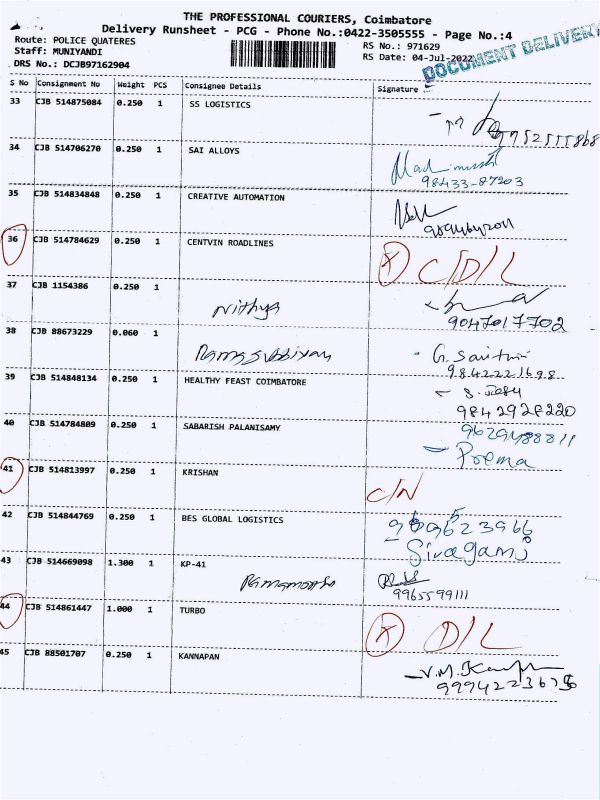 THE PROFESSIONAL COURIERS, Coimbatore
Delivery Runsheet - PCG - Phone No.:0422-3505555 - Page No.:4
Route: POLICE QUATERES RS No.: 971629
Staff: MUNIYANDI RS Date: 04-Jul-2022
DRS No.: DCJB97162904
DOCUMENT DELIVERY
S No Consignment No Weight PCS Consignee Details Signature
33 CJB 514875084 0.250 1 SS LOGISTICS
9752555868
34 CJB 514706270 0.250 1 SAI ALLOYS
98433-87203
35 CJB 514834848 0.250 1 CREATIVE AUTOMATION
36 CJB 514784629 0.250 1 CENTVIN ROADLINES
X C/D/L
37 CJB 1154386 0.250 1
Nithya
9047017702
38 CJB 88673229 0.060 1
G. Savithri
9842221698
39 CJB 514848134 0.250 1 HEALTHY FEAST COIMBATORE
9842928220
40 CJB 514784809 0.250 1 SABARISH PALANISAMY
9629488811
Prema
41 CJB 514813997 0.250 1 KRISHAN
C/N
42 CJB 514844769 0.250 1 BES GLOBAL LOGISTICS
Sivagami
43 CJB 514669098 1.300 1 KP-41
9965599111
44 CJB 514861447 1.000 1 TURBO
X D/L
45 CJB 88501707 0.250 1 KANNAPAN
V.M.